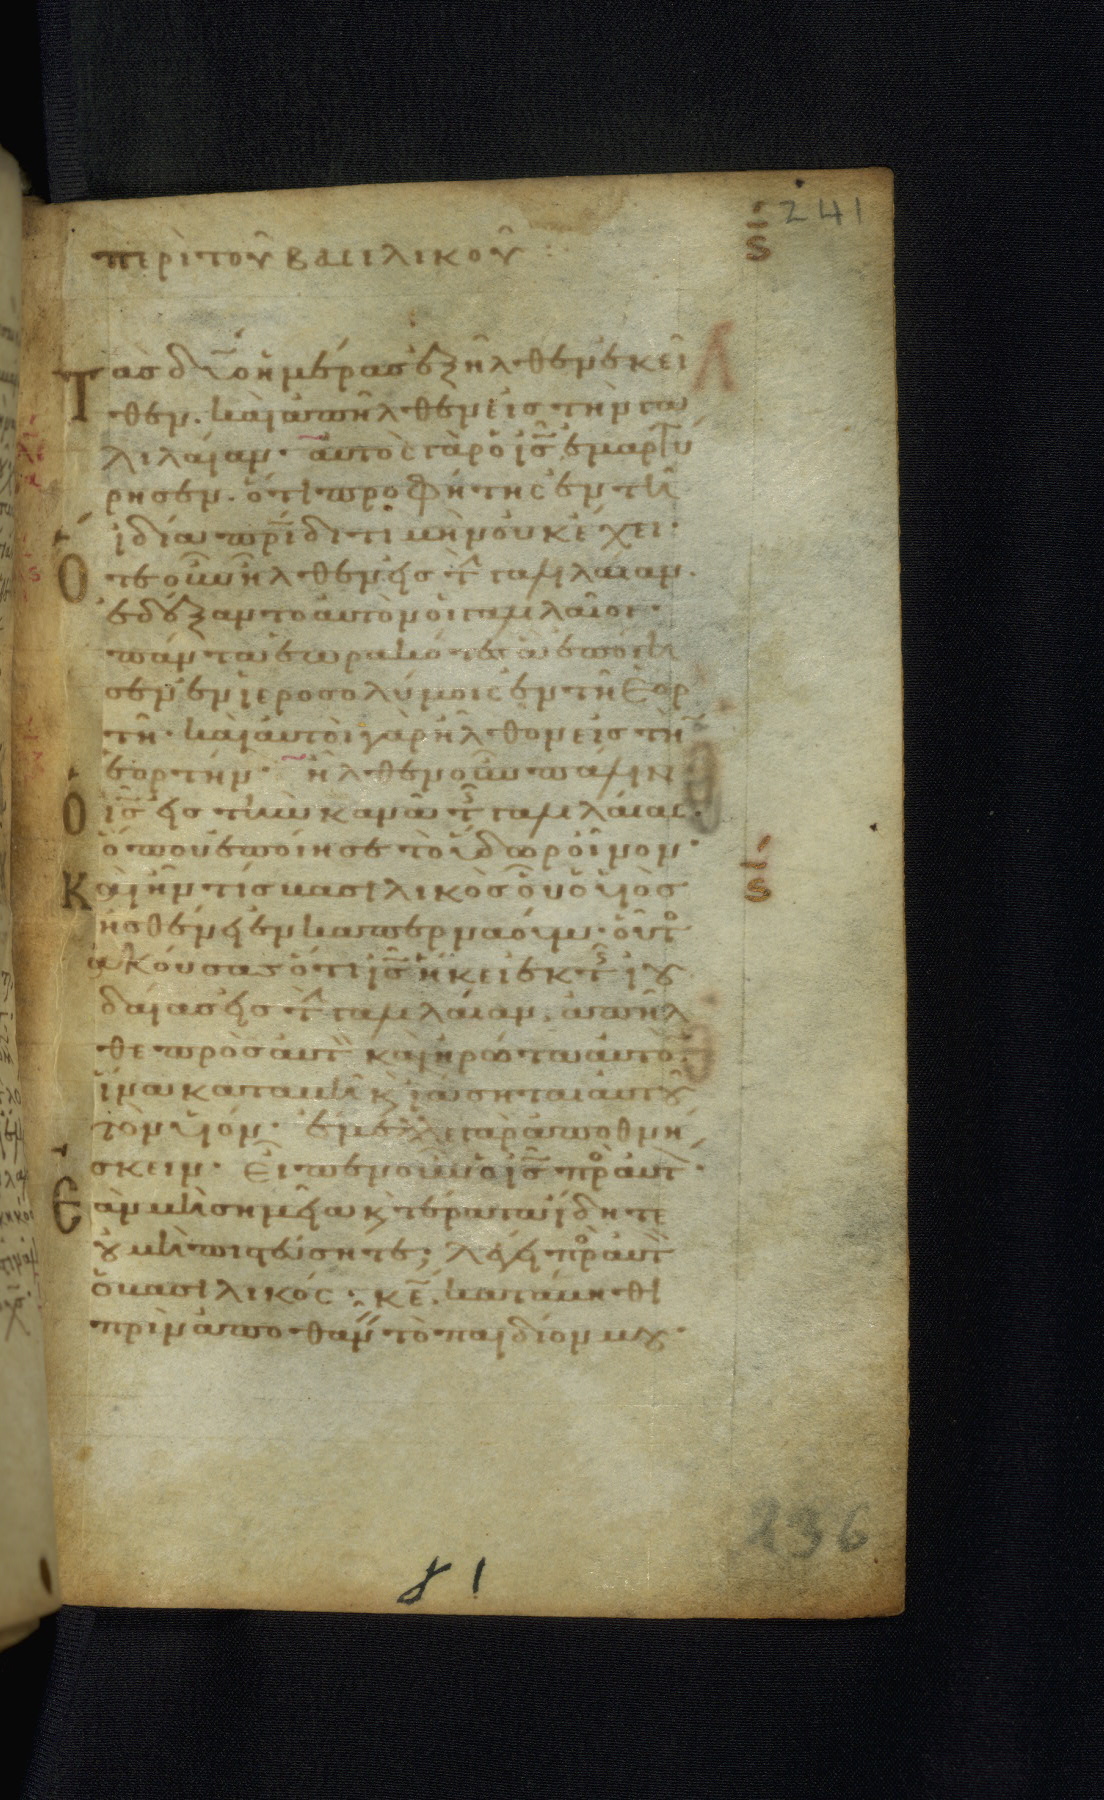 241
ς
περὶ τοῦ βασιλικοῦ :
Τὰς δύο ἡμέρας ἐξῆλθεν ἐκεῖ
θεν. καὶ ἀπῆλθεν εἰς τὴν γα
λιλαίαν. αὐτὸς γὰρ ὁ ις ἐμαρτύ
ρησεν. ὅτι προφήτης ἐν τῆ
ἰδία πρίδι τιμὴν οὐκ ἔχει.
Ὅτε οὖν ἦλθεν εἰς τ γαλιλαίαν.
ἐδέξαντο αὐτὸν οἱ γαλιλαῖοι.
πάντα ἑωρακότες ἃ ἐποίη
σεν ἐν ἱεροσολύμοις ἐν τῆ ἑορ
τῆ. καὶ αὐτοὶ γὰρ ἦλθον εἰς τὴ
ἑορτήν. ἦλθεν οὖν πάλιν
ὁ ις εἰς τὴν κανᾶ τ γαλιλαίας.
ὅπου ἐποίησε τὸ ὕδωρ οἶνον.
Καὶ ἦν τις βασιλικὸς οὗ ὁ υἱὸς
ἠσθένει ἐν καπερναούμ. οὗτ
ἀκούσας ὅτι ις ἥκει ἐκ τ ἰου
δαίας εἰς τ γαλιλαίαν. ἀπῆλ
θε πρὸς αὐτ καὶ ἠρώτα αὐτὸ
ἵνα καταβῆ κ ἰάσηται αὐτοῦ
τὸν υἱόν. ἔμελλε γὰρ ἀποθνή
σκειν. Εἶπεν οὖν ὁ ις πρ αὐτ.
Ἐὰν μὴ σημεῖα κ τέρατα ἴδητε
οὐ μὴ πιστεύσητε; λέγει πρ αὐτ
ὁ βασιλικός. κε. κατάβηθι
πρὶν ἀποθαν τὸ παιδίον μου.
ς
236
81